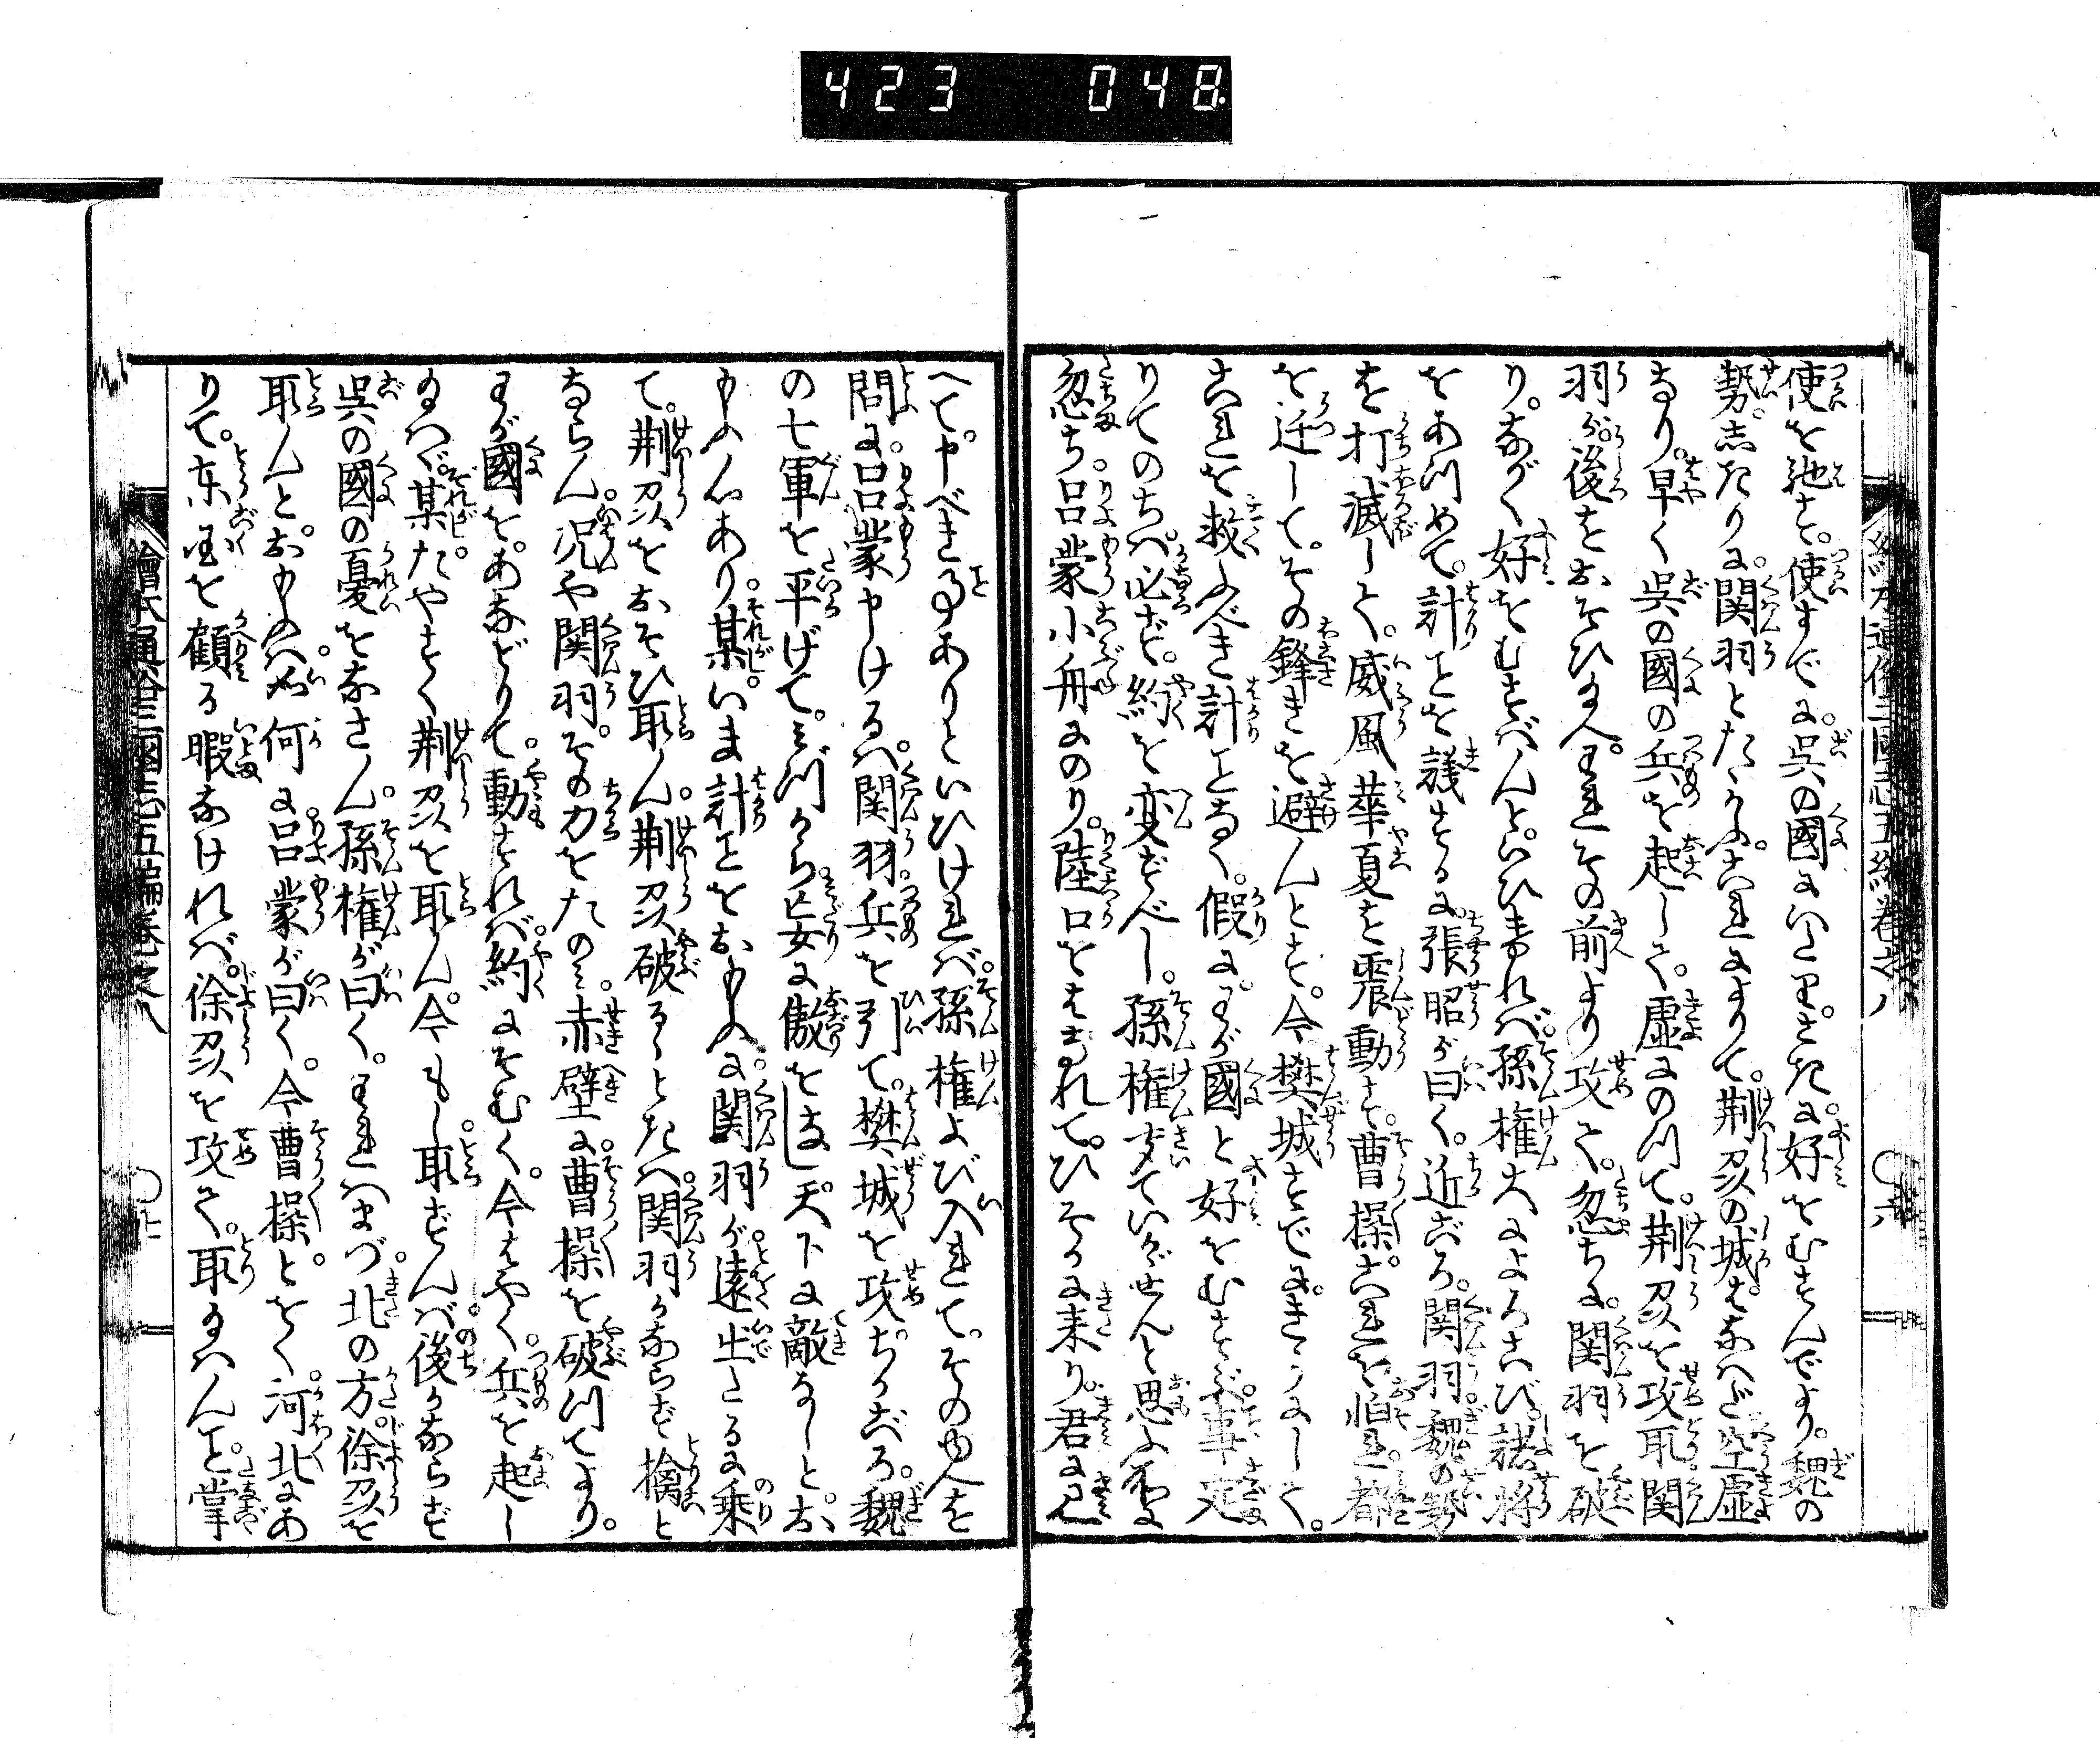 423 048
使を馳す。使すでに。呉の國にいたり。さきに。好をむすんでより。魏の
勢。志きりに。関羽とたゝかふ。これによりて。荊州の城。そなへど空虚
なり。早く呉の國の兵を起して。虚にのつて。荊州を攻取。関
羽が。後をおそひ玉へ。われその前より攻て。忽ちに。関羽を破
り。ながく好をむすべんと。いひければ。孫権大によろこび。諸将
をあつめて。計ことを議するに。張昭が曰く。近ごろ。関羽。魏の勢
を打滅して。威風華夏を震動す。曹操。これを怕れ。都
を迁して。その鋒きを避んとす。今樊城すでに。きうにして。
これを救ふべき計ことなく。假に。わが國と好をむすぶ。事定
りてのち。必ず。約を変ずべし。孫権すていかゞせんと思ふ所に
忽ち。呂蒙小舟にのり。陸口をはなれて。ひそかに来り。君に見
へて。申べき事ありといひければ。孫権よび入れて。そのゆへを
問に。呂蒙申けるは。関羽。兵を引て。樊城を攻。ちかごろ。魏
の七軍を平げて。みづから妄に傲をなし。天下に敵なしとお
もふ心あり。某。いま計ことをおもふに。関羽が。遠く出たるに乗
て。荊州をおそひ取ん。荊州破るゝときは。関羽かならず擒と
ならん。況や関羽。その力をたのみ。赤壁に。曹操を破つてより。
わが國を。あなどりて。動すれば。約にそむく。今はやく。兵を起し
玉へば。某。たやすく荊州を取ん。今もし。取ずんば。後かならず
呉の國の憂をなさん。孫権が曰く。われはまづ。北の方。徐州を
取んと。おもふは如何に。呂蒙が曰く。今曹操。とをく。河北にあ
りて。東呉を顧る暇なければ。徐州を攻て。取玉はんこと。掌
繪本通俗三國志五編巻之八